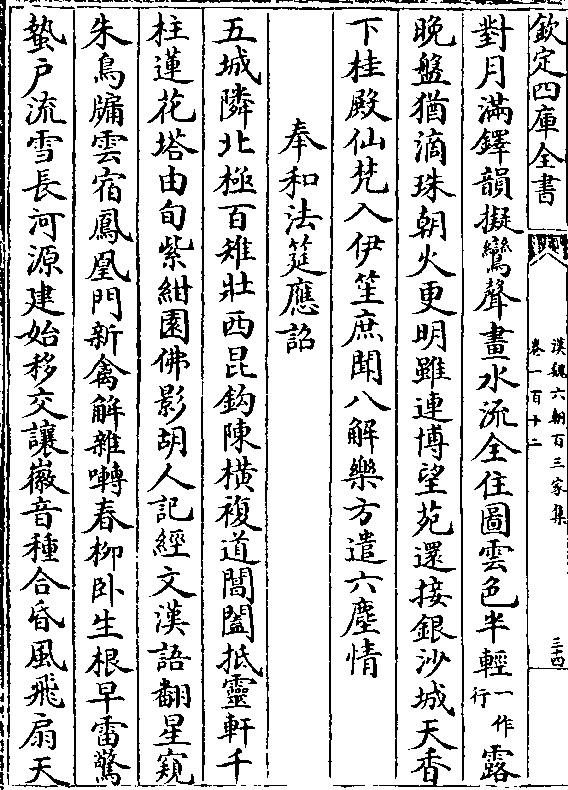 欽定四庫全書
漢魏六朝百三家集
卷一百十二
三十四
對月滿鐸韻擬鸞聲畫水流全住圖雲色半輕一作行露
晚盤猶滴珠朝火更明雖連博望苑還接銀沙城天香
下桂殿仙梵入伊笙庶聞八解樂方遣六塵情
奉和法筵應詔
五城隣北極百雉壯西昆鈎陳横複道閶闔抵靈軒千
柱蓮花塔由旬紫紺園佛影胡人記經文漢語翻星窺
朱鳥牖雲宿鳳凰門新禽解雜囀春柳卧生根早雷驚
蟄户流雪長河源建始移交讓徽音種合昏風飛扇天